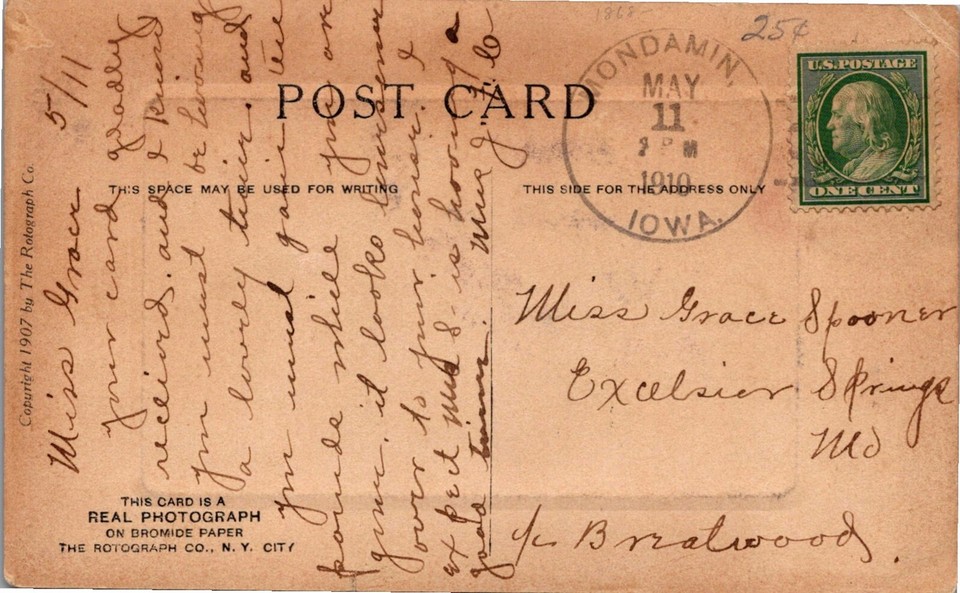 1868
25¢
POST CARD
THIS SPACE MAY BE USED FOR WRITING
THIS SIDE FOR THE ADDRESS ONLY
MONDAMIN,
MAY
11
PM
1910
IOWA.
U.S. POSTAGE
ONE CENT
Copyright 1907 by The Rotograph Co.
5/11
Miss Grace
your card gladly
received. and I kind
you must be having
a lovely time. and
you must gain ten
pounds while you are
gone. it looks lonesome
over to your house. I
expect Mrs S. is having a
good time. Mrs J
Miss Grace Spooner
Excelsior Springs
Mo
c/o Brealwood.
THIS CARD IS A
REAL PHOTOGRAPH
ON BROMIDE PAPER
THE ROTOGRAPH CO., N. Y. CITY